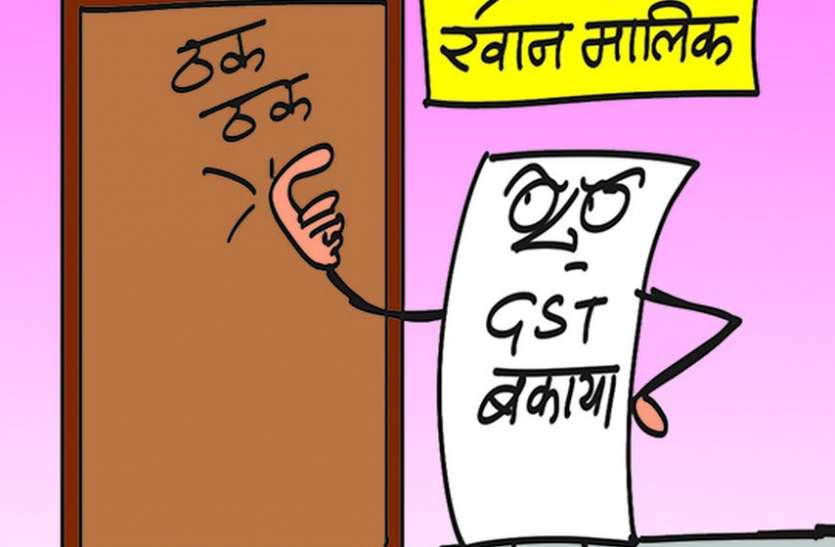 खान मालिक
ठक
ठक
GST
बकाया